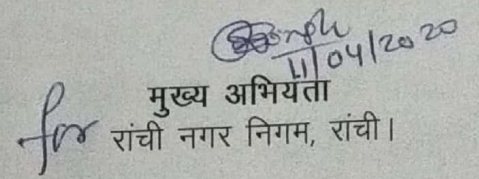 11/04/2020
मुख्य अभियंता
for रांची नगर निगम, रांची।